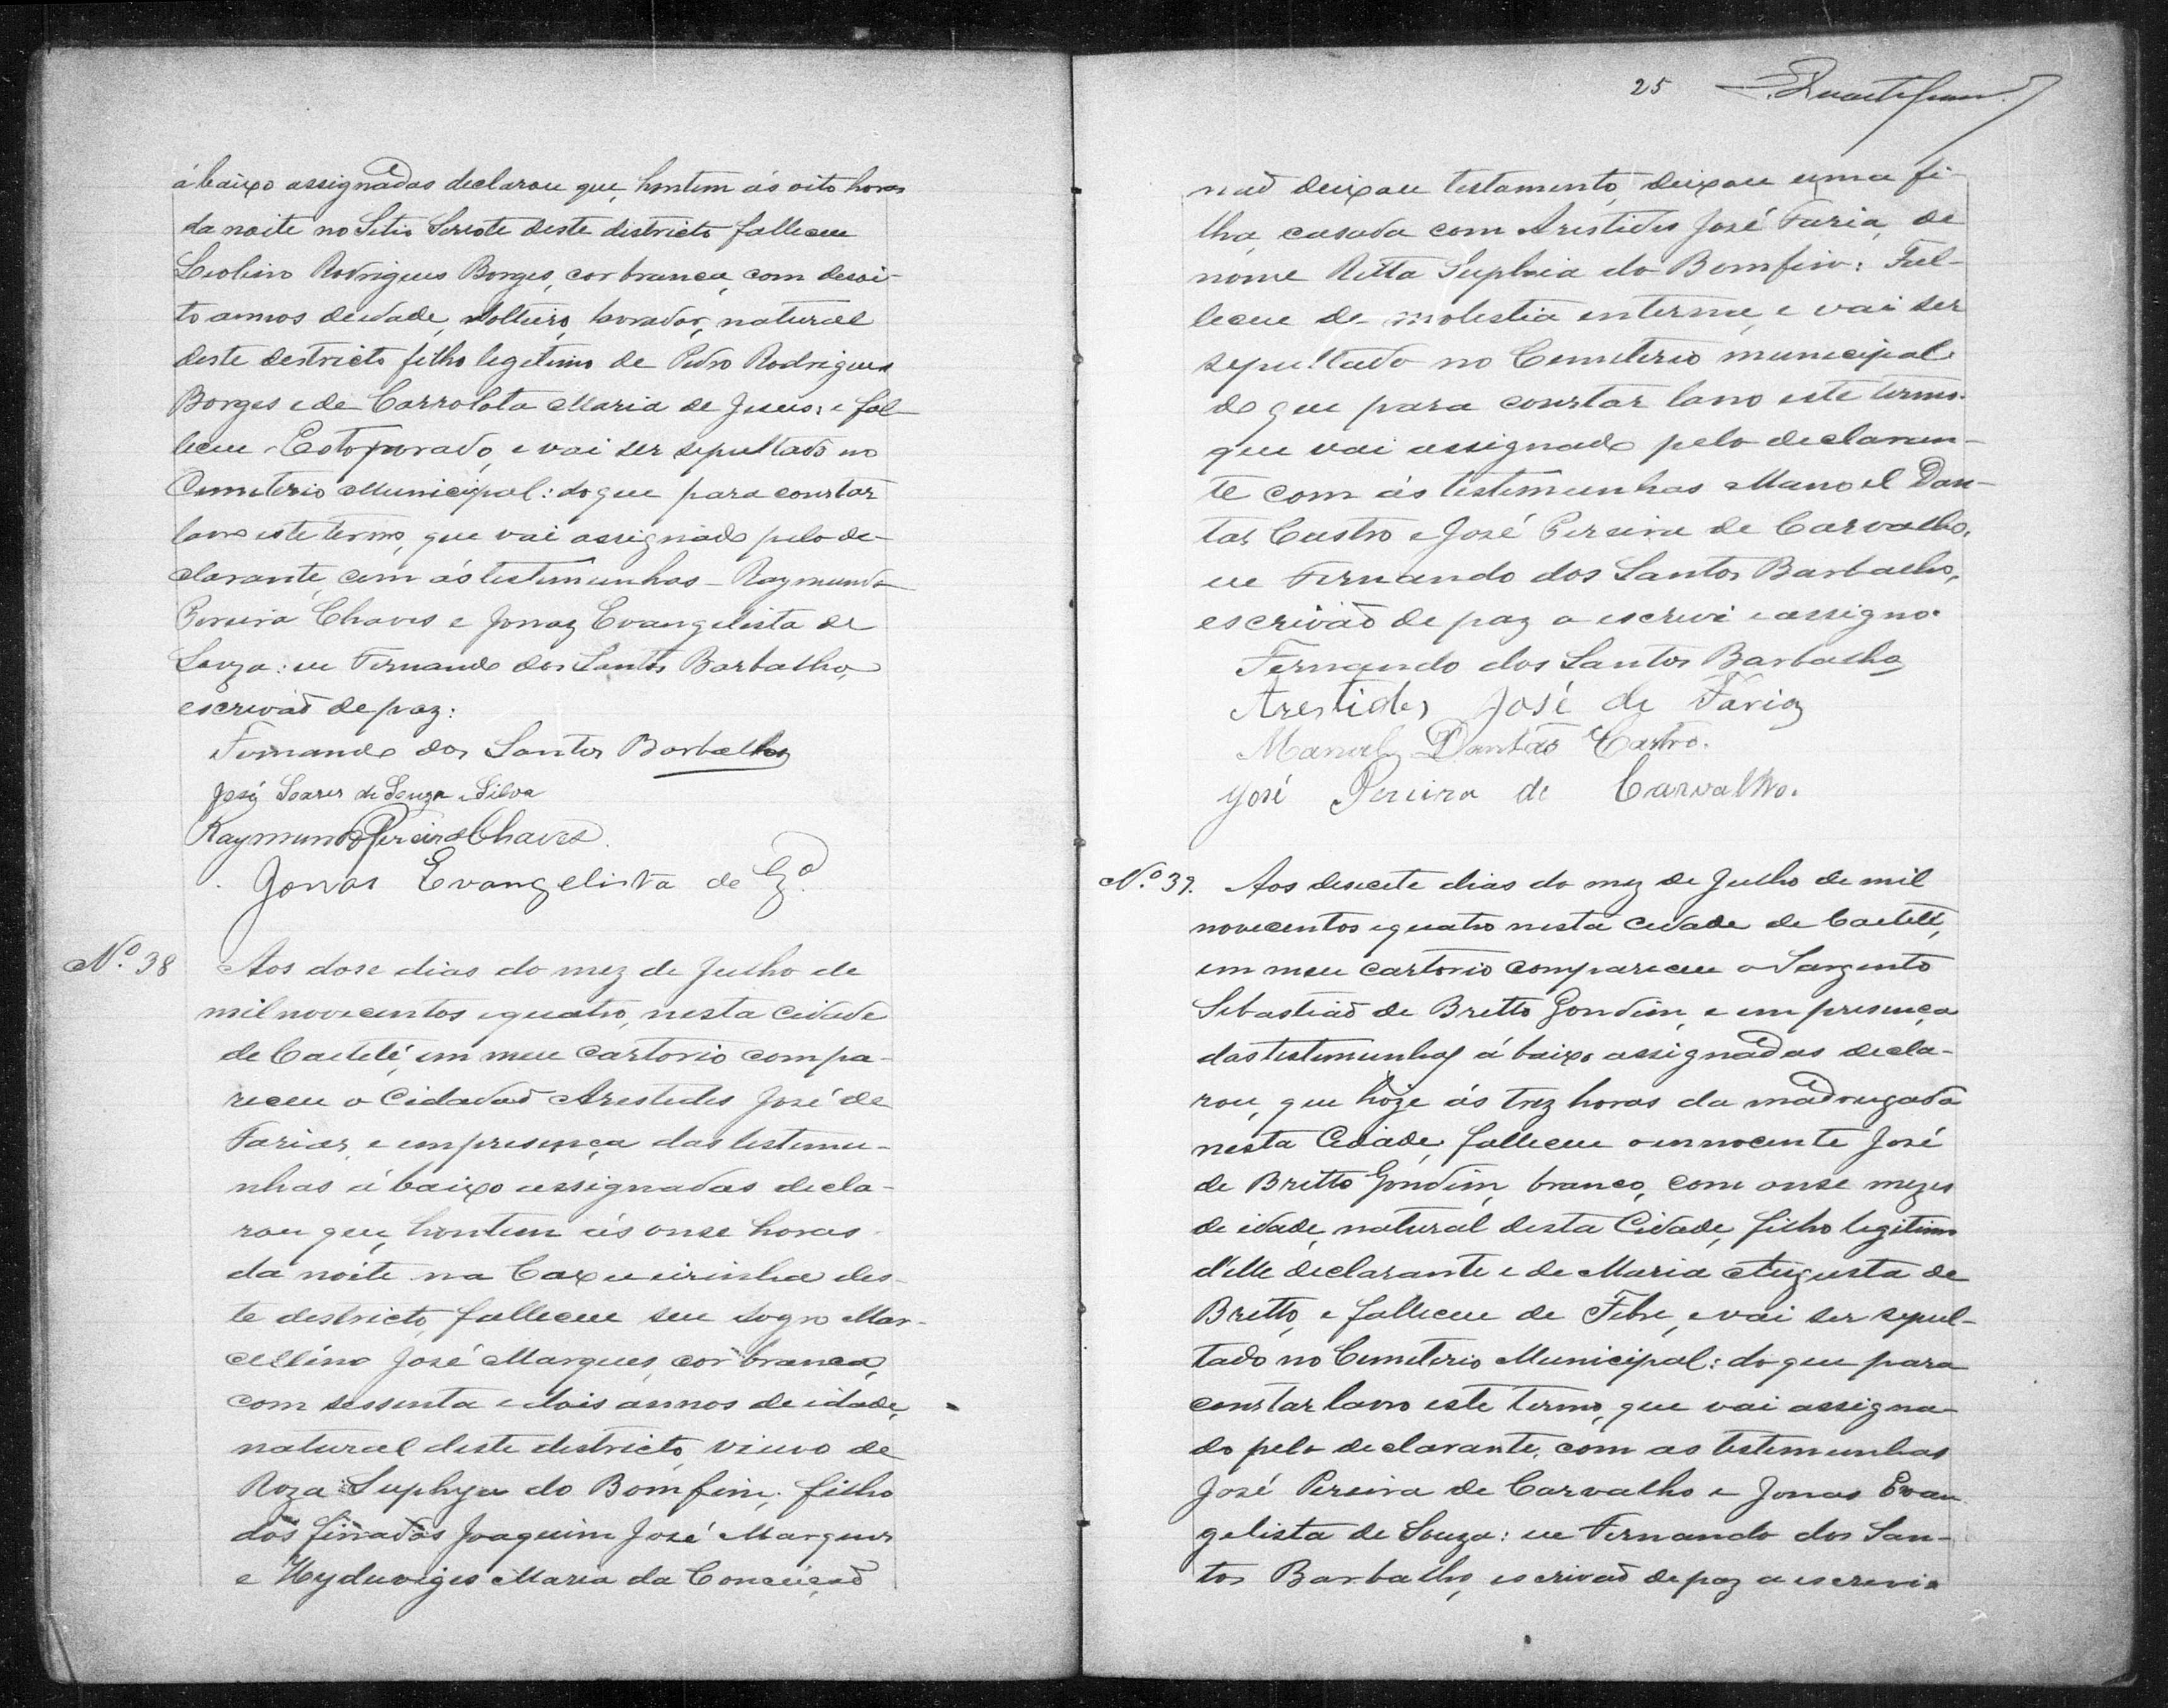 ábaixo assignadas declarou que, hontem ás oito horas
da noite no Sitio Serrote deste districto falleceu
Leolino Rodrigues Borges, cor branca, com desoi-
to annos de idade, solteiro, lavrador, natural
deste destricto filho legetimo de Pedro Rodrigues
Borges e de Carrolota Maria de Jesus: e fal-
leceu Estoporado, e vai ser sepultado no
Cemeterio Municipal: do que para constar
lavro este termo, que vai assignado pelo de-
clarante, com ás testemunhas Raymundo
Pereira Chaves e Jonaz Evangelista de
Souza: eu Fernando dos Santos Barbalho,
escrivaõ de paz:
Fernando dos Santos Barbalho
José Soares de Souza e Silva
Raymundo Pereira Chaves.
Jonas Evangelista de Sza.
Nº. 38 Aos dose dias do mez de Julho de
mil novecentos e quatro, nesta Cidade
de Caeteté, em meu Cartorio compa-
receu o Cidadaõ Arestedes José de
Farias, e em presença das testemu-
nhas ábaixo assignadas decla-
rou que, hontem ás onse horas
da noite na Caxueirinha des-
te destricto, falleceu seu sogro Mar-
cellino José Marques, cor branca,
com sessenta e dois annos de idade,
natural deste districto, viuvo de
Roza Suphya do Bomfim; filho
dos finados Joaquim José Marques
e Heyduviges Maria da Conceiçaõ
25
naõ deixou testamento, deixou uma fi-
lha, casada com Aristides José Faria, de
nome Ritta Suphia do Bomfim: Fal-
leceu de molestia interna, e vai ser
sepultado no Cemeterio municipal:
do que para constar lavro este termo.
que vai assignado pelo declaran-
te com ás testemunhas Manoel Dan-
tas Castro e José Pereira de Carvalho.
eu Fernando dos Santos Barbalho,
escrivaõ de paz o escrevi e assigno.
Fernando dos Santos Barbalho
Arestides José de Faria
Manoel Dantas Castro.
José Pereira de Carvalho.
Nº. 39. Aos desecete dias do mez de Julho de mil
novecentos e quatro nesta Cidade de Caeteté,
em meu cartorio compareceu o Sargento
Sebastiaõ de Britto Gondim, e em presença
das testemunhas ábaixo assignadas decla-
rou, que hoje ás trez horas da madrugada
nesta Cidade, falleceu o innocente José
de Britto Gondim, branco, com onse mezes
de idade, natural desta Cidade, filho legitimo
d'elle declarante e de Maria Augusta de
Britto, e falleceu de Febre, e vai ser sepul-
tado no Cemeterio Municipal: do que para
constar lavro este termo, que vai assigna-
do pelo declarante, com as testemunhas
José Pereira de Carvalho e Jonas Evan
gelista de Souza: eu Fernando dos San-
tos Barbalho, escrivaõ de paz o escrevi